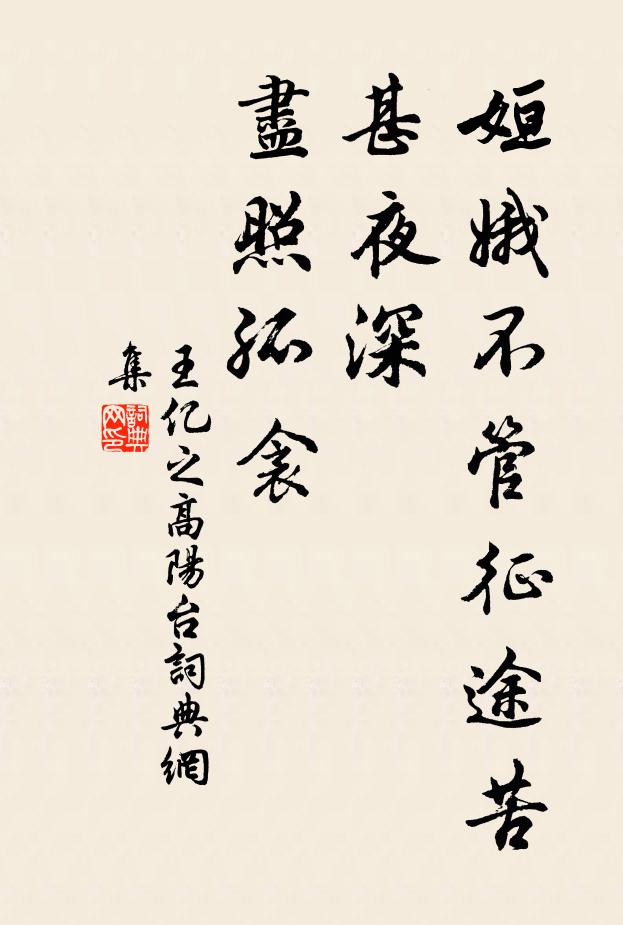 姮娥不管征途苦
甚夜深
盡照孤衾
王亿之高陽台詞典網
集
詞典
网印